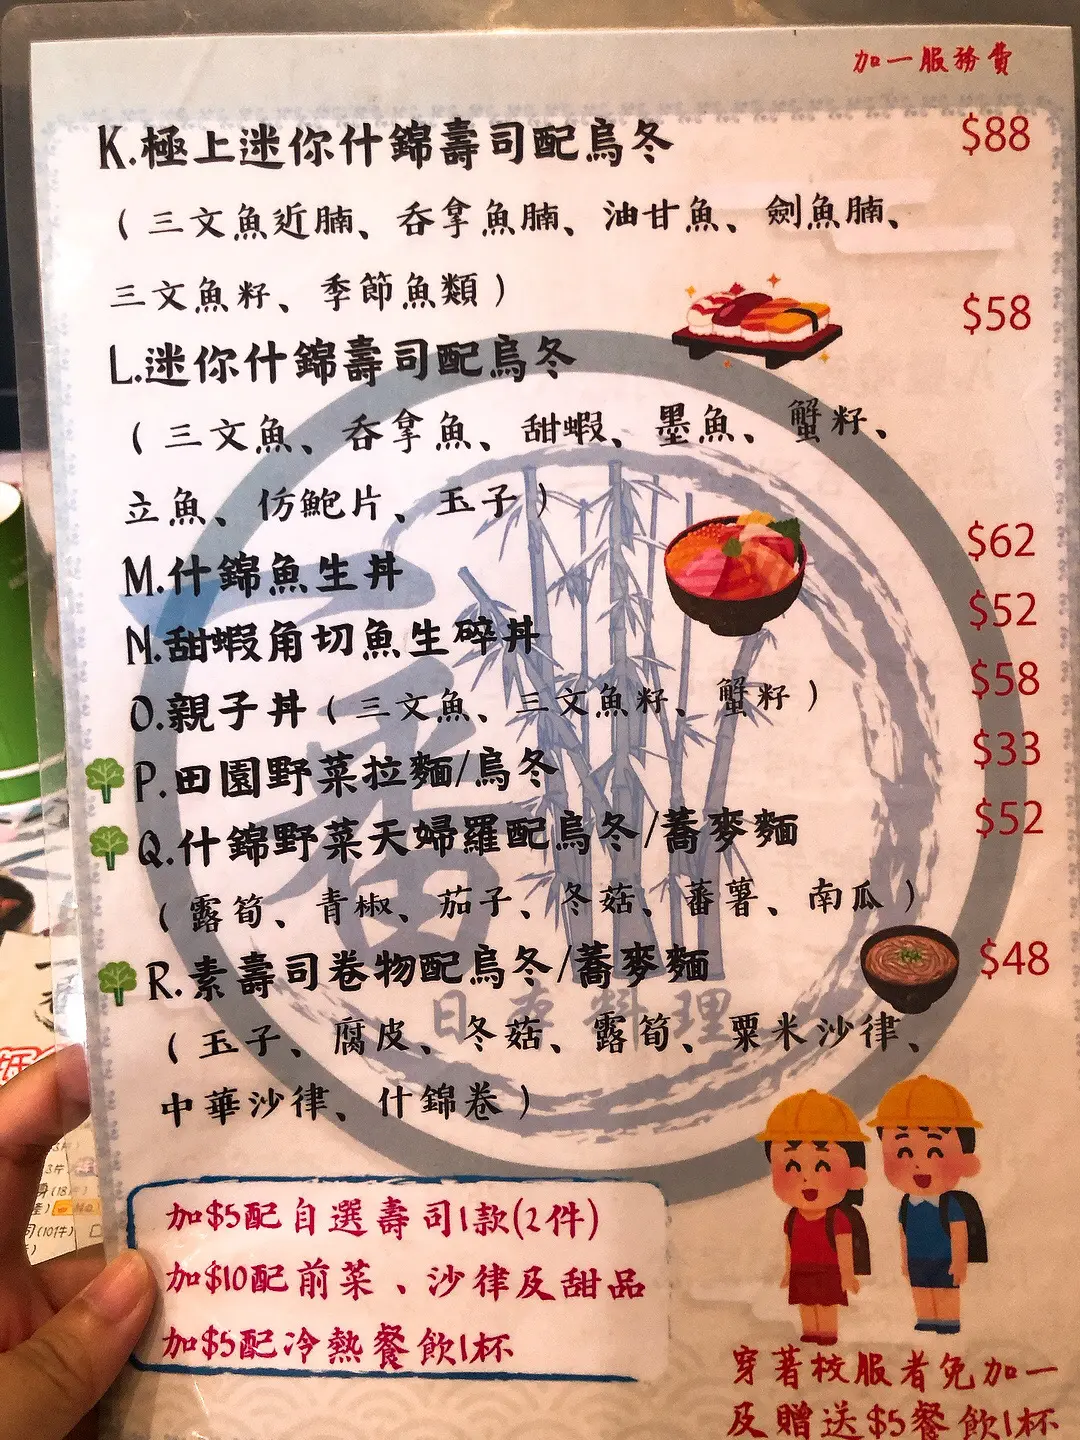 加一服務費
K.極上迷你什錦壽司配烏冬 $88
(三文魚近腩、吞拿魚腩、油甘魚、劍魚腩、
三文魚籽、季節魚類)
L.迷你什錦壽司配烏冬 $58
(三文魚、吞拿魚、甜蝦、墨魚、蟹籽、
立魚、仿鮑片、玉子)
M.什錦魚生丼 $62
N.甜蝦角切魚生碎丼 $52
O.親子丼(三文魚、三文魚籽、蟹籽) $58
P.田園野菜拉麵/烏冬 $33
Q.什錦野菜天婦羅配烏冬/蕎麥麵 $52
(露筍、青椒、茄子、冬菇、蕃薯、南瓜)
R.素壽司卷物配烏冬/蕎麥麵 $48
(玉子、腐皮、冬菇、露筍、粟米沙律、
中華沙律、什錦卷)
一番
日本料理
加$5配自選壽司1款(2件)
加$10配前菜、沙律及甜品
加$5配冷熱餐飲1杯
穿著校服者免加一
及贈送$5餐飲1杯